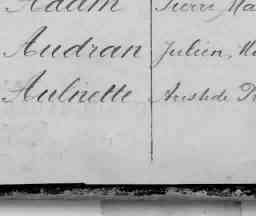 Adam Pierre Ma
Audran Julien, M
Aulnette Aristide P